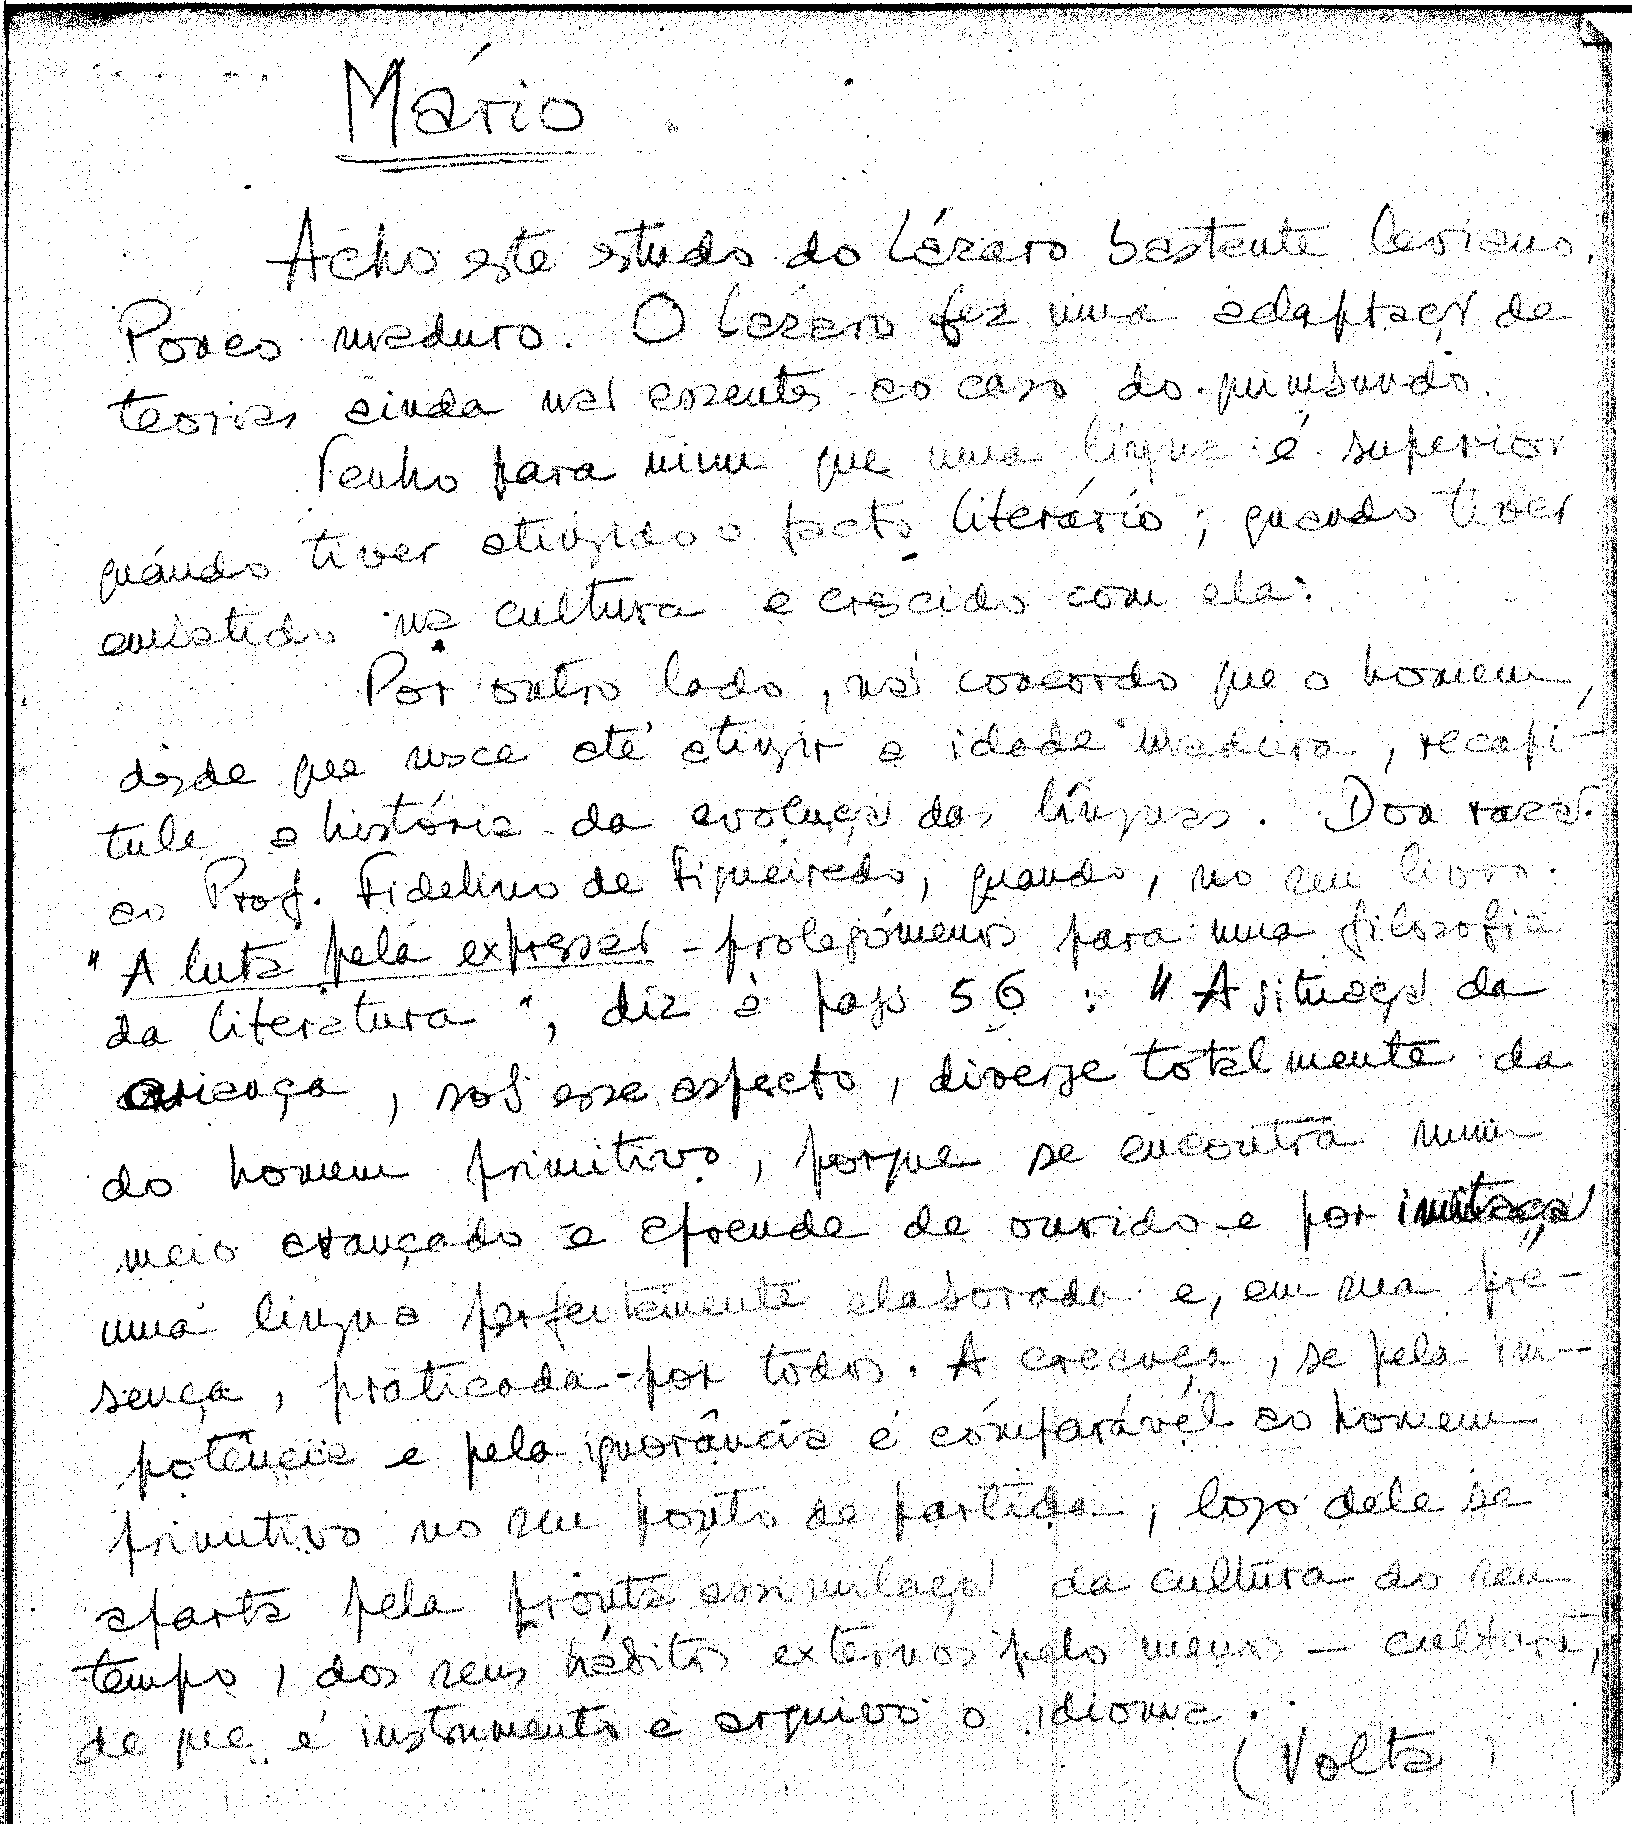 Mário
Acho este estudo do Lázaro bastante leviano.
Pouco maduro. O Lázaro fez uma adaptação de
teorias ainda não assentes ao caso do quimbundo.
Tenho para mim que uma língua é superior
quando tiver atingido o facto literário; quando tiver
existido na cultura e crescido com ela.
Por outro lado, não concordo que o homem,
desde que nasce até atingir a idade madura, recapi-
tule a história da evolução das línguas. Dou razão
ao Prof. Fidelino de Figueiredo, quando, no seu livro
"A luta pela expressão - prolegómenos para uma filosofia
da literatura", diz à pags 56: "A situação da
criança, sob esse aspecto, diverge totalmente da
do homem primitivo, porque se encontra num
meio avançado e aprende de ouvido e por imitação
uma língua perfeitamente elaborada e, em sua pre-
sença, praticada por todos. A criança, se pela im-
potência e pela ignorância é comparável ao homem
primitivo no seu ponto de partida, logo dele se
aparta pela pronta assimilação da cultura do seu
tempo, dos seus hábitos externos pelo menos - cultura,
de que é instrumento e arquivo o idioma.
(Volta)